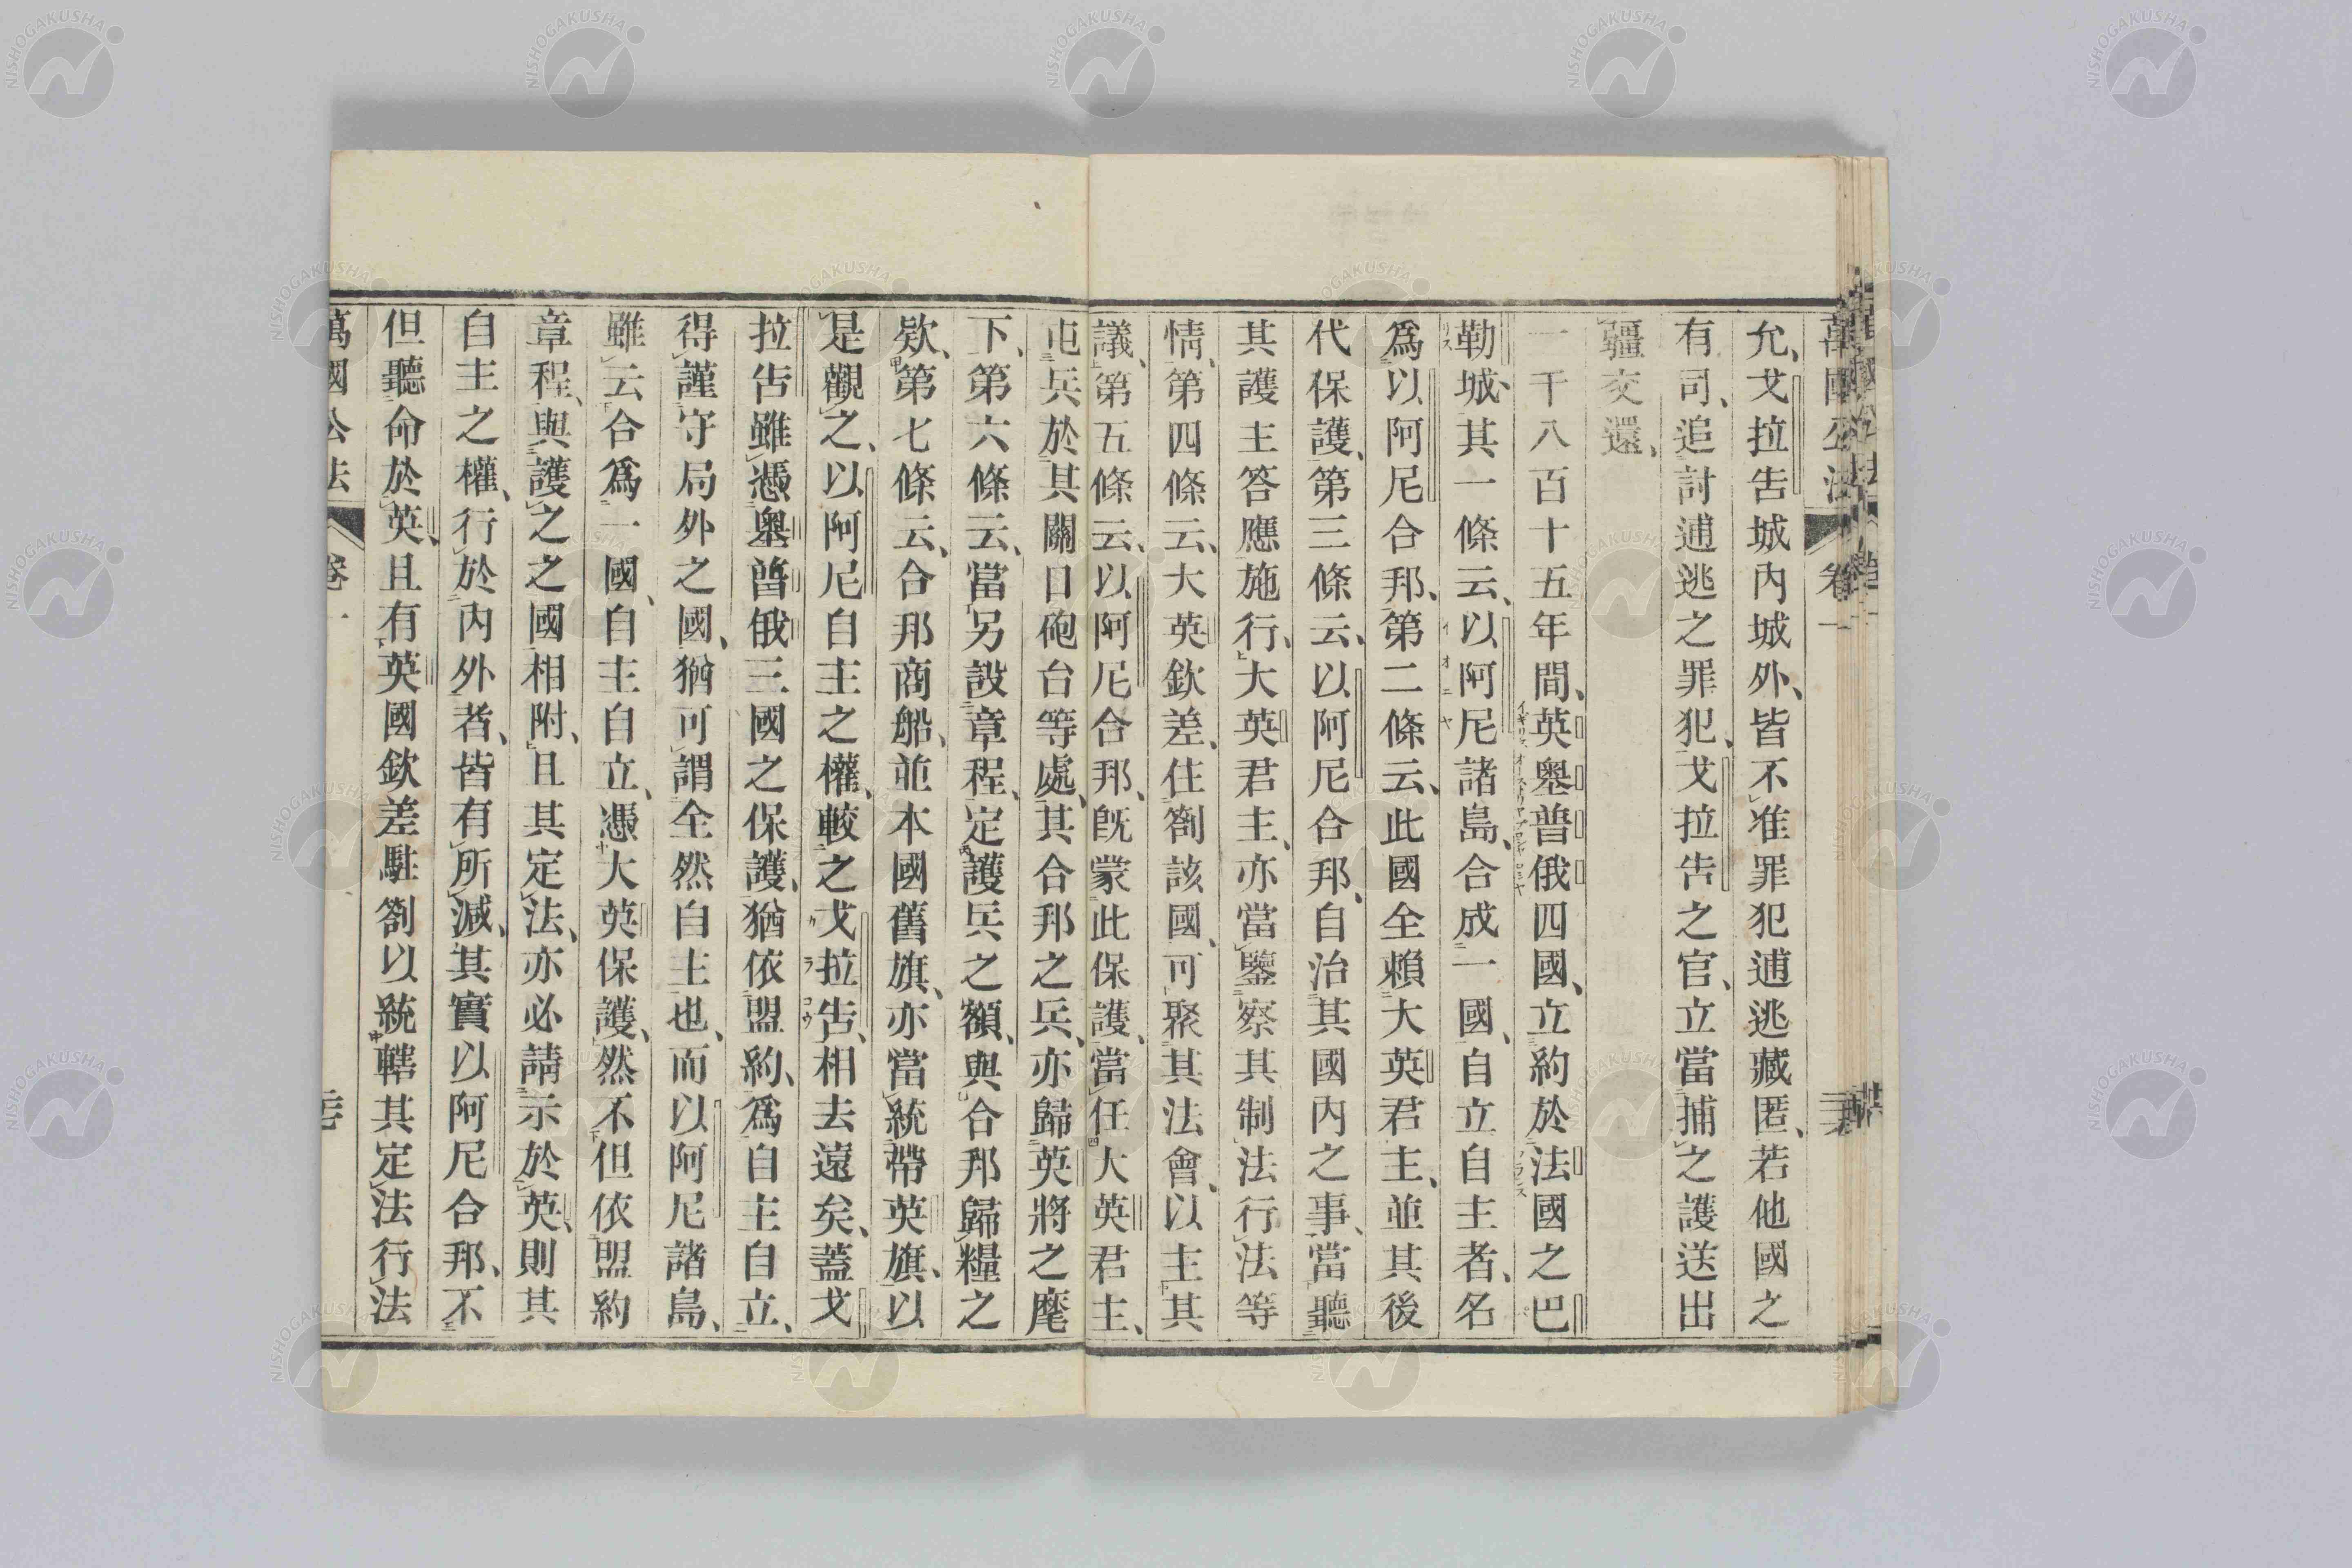 萬國公法 卷一
允、戈拉告城內城外、皆不准罪犯逋逃藏匿、若他國之
有司、追討逋逃之罪犯、戈拉告之官、立當捕之護送出
疆交還、
一千八百十五年間、英奧普俄四國、立約於法國之巴
勒城、其一條云、以阿尼諸島、合成一國、自立自主者、名
爲以阿尼合邦、第二條云、此國全賴大英君主、並其後
代保護、第三條云、以阿尼合邦、自治其國內之事、當聽
其護主答應施行、大英君主、亦當鑒察其制法行法等
情、第四條云、大英欽差、住劄該國、可聚其法會、以主其
議、第五條云、以阿尼合邦、旣蒙此保護、當任大英君主、
屯兵於其關口砲台等處、其合邦之兵、亦歸英將之麾
下、第六條云、當另設章程、定護兵之額、與合邦歸糧之
欵、第七條云、合邦商船、並本國舊旗、亦當統帶英旗、以
是觀之、以阿尼自主之權、較之戈拉告、相去遠矣、蓋戈
拉告雖憑奧普俄三國之保護、猶依盟約、爲自主自立、
得謹守局外之國、猶可謂全然自主也、而以阿尼諸島、
雖云合爲一國、自主自立、憑大英保護、然不但依盟約
章程、與護之之國相附、且其定法、亦必請示於英、則其
自主之權、行於內外者、皆有所減、其實以阿尼合邦、不
但聽命於英、且有英國欽差駐劄以統轄其定法行法
萬國公法 卷一
NISHOGAKUSHA